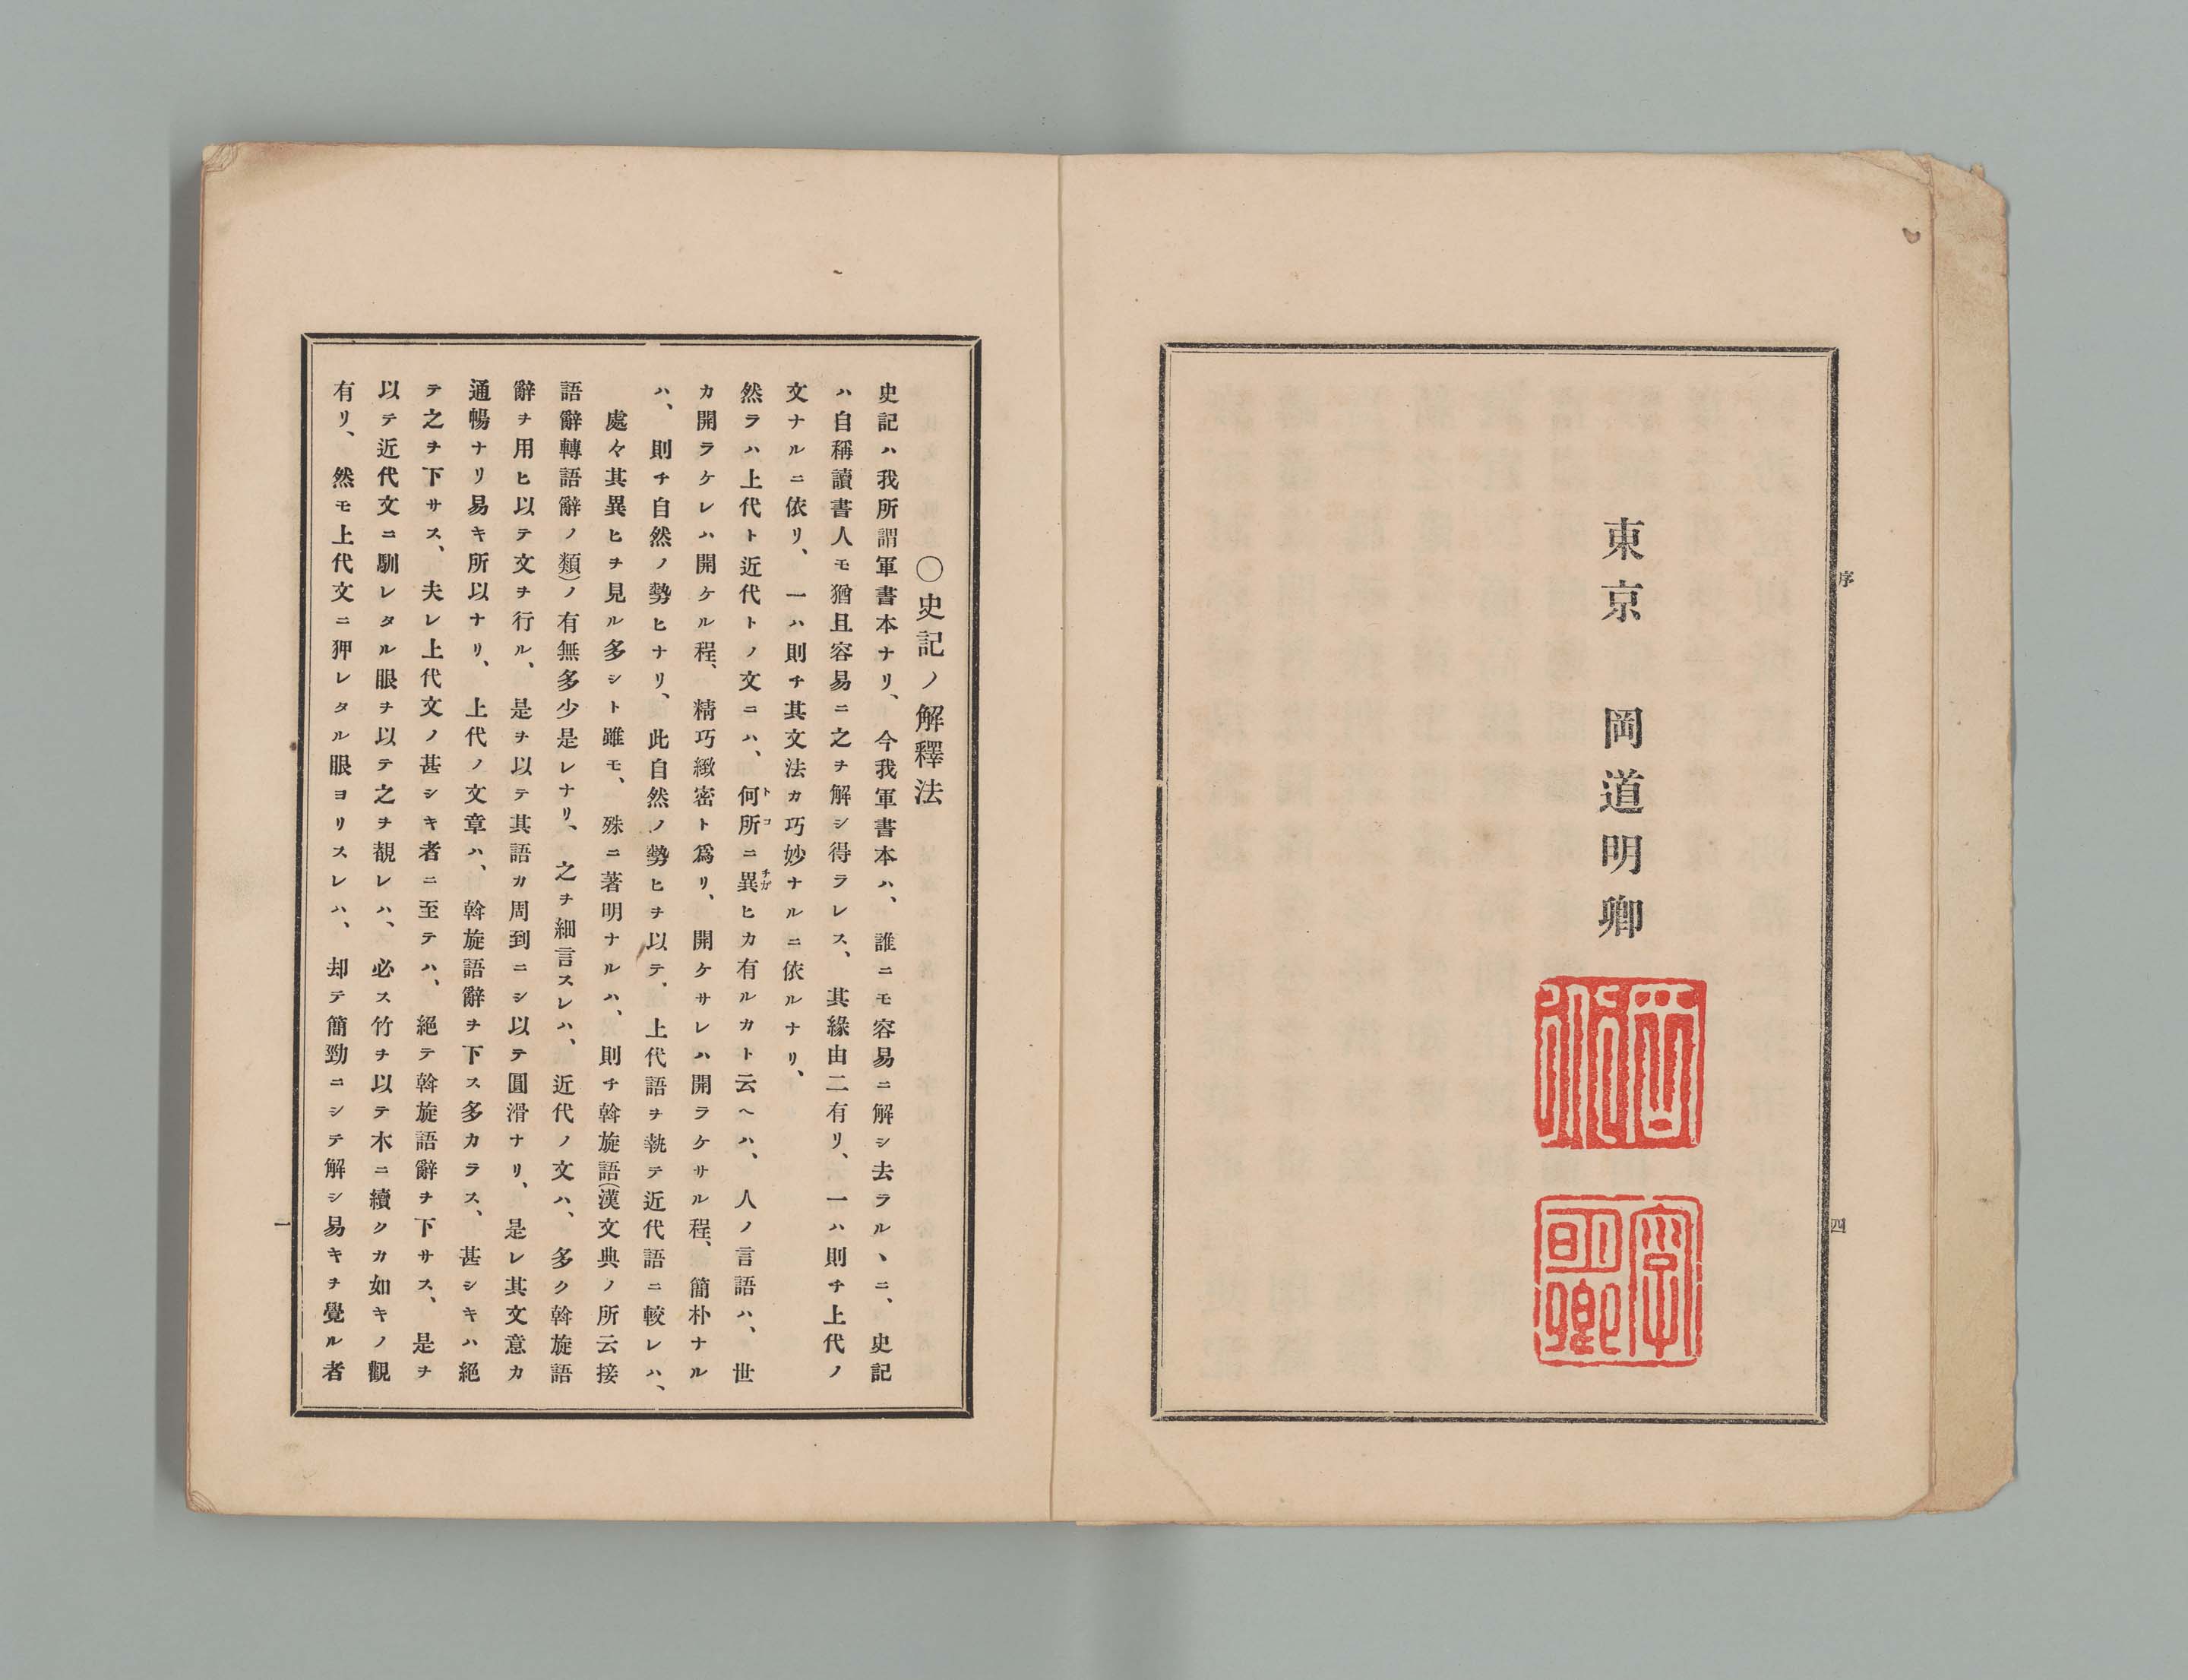 序
東京 岡道明卿
四
〇史記ノ解釋法
史記ハ我所謂軍書本ナリ、今我軍書本ハ、誰ニモ容易ニ解シ去ラルヽニ、史記
ハ自稱讀書人モ猶且容易ニ之ヲ解シ得ラレス、其緣由二有リ、一ハ則チ上代ノ
文ナルニ依リ、一ハ則チ其文法カ巧妙ナルニ依ルナリ、
然ラハ上代ト近代トノ文ニハ、何所ニ異ヒカ有ルカト云ヘハ、人ノ言語ハ、世
トコ チガ
カ開ラケレハ開ケル程、精巧緻密ト爲リ、開ケサレハ開ラケサル程、簡朴ナル
ハ、則チ自然ノ勢ヒナリ、此自然ノ勢ヒヲ以テ、上代語ヲ執テ近代語ニ較レハ、
處々其異ヒヲ見ル多シト雖モ、殊ニ著明ナルハ、則チ斡旋語(漢文典ノ所云接
語辭轉語辭ノ類)ノ有無多少是レナリ、之ヲ細言スレハ、近代ノ文ハ、多ク斡旋語
辭ヲ用ヒ以テ文ヲ行ル、是ヲ以テ其語カ周到ニシ以テ圓滑ナリ、是レ其文意カ
通暢ナリ易キ所以ナリ、上代ノ文章ハ、斡旋語辭ヲ下ス多カラス、甚シキハ絕
テ之ヲ下サス、夫レ上代文ノ甚シキ者ニ至テハ、絕テ斡旋語辭ヲ下サス、是ヲ
以テ近代文ニ馴レタル眼ヲ以テ之ヲ覩レハ、必ス竹ヲ以テ木ニ續クカ如キノ觀
有リ、然モ上代文ニ狎レタル眼ヨリスレハ、却テ簡勁ニシテ解シ易キヲ覺ル者
一